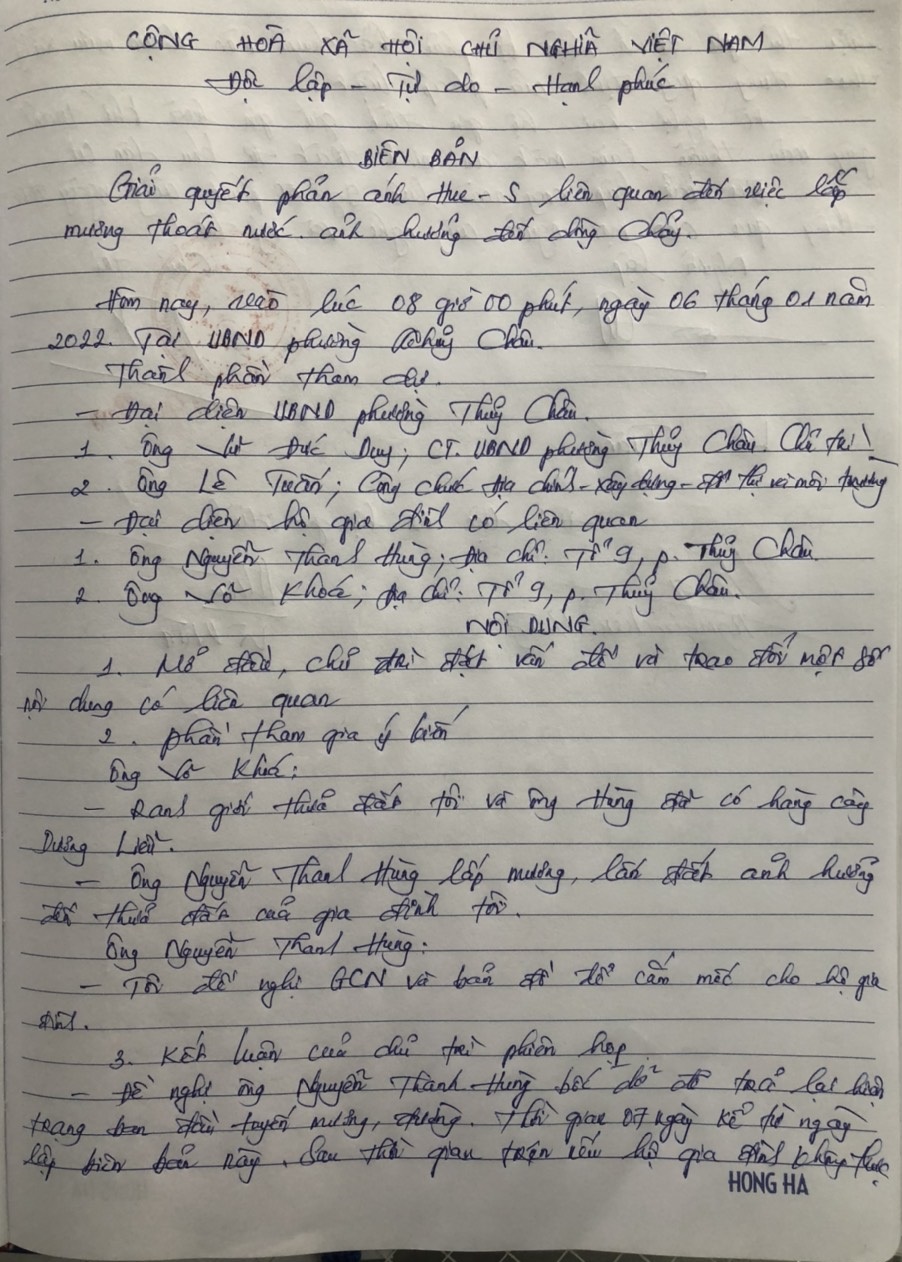 CỘNG HOÀ XÃ HỘI CHỦ NGHĨA VIỆT NAM
Độc lập - Tự do - Hạnh phúc
BIÊN BẢN
Giải quyết phản ánh Hue-S liên quan đến việc lấp
mương thoát nước ảnh hưởng đến dòng chảy.
Hôm nay, vào lúc 08 giờ 00 phút, ngày 06 tháng 01 năm
2022. Tại UBND phường Thủy Châu.
Thành phần tham dự.
- Đại diện UBND phường Thủy Châu.
1. Ông Đức Duy; CT. UBND phường Thủy Châu. Chủ trì!
2. Ông Lê Tuấn; Công chức địa chính - xây dựng - đô thị và môi trường
- Đại diện hộ gia đình có liên quan
1. Ông Nguyễn Thanh Hùng; Địa chỉ: Tổ 9, p. Thủy Châu
2. Ông Võ Khoá; Địa chỉ: Tổ 9, p. Thủy Châu.
NỘI DUNG.
1. Mở đầu, chủ trì đặt vấn đề và trao đổi một số
nội dung có liên quan
2. phần tham gia ý kiến
Ông Võ Khoá:
- Ranh giới thửa đất tôi và ông Hùng đã có hàng cây
Dương Liễu.
- Ông Nguyễn Thanh Hùng lấp mương, lấn đất ảnh hưởng
đến thửa đất của gia đình tôi.
Ông Nguyễn Thanh Hùng:
- Tôi đề nghị GCN và bản đồ để cắm mốc cho hộ gia
đình.
3. Kết luận của chủ trì phiên họp
- Đề nghị ông Nguyễn Thanh Hùng bốc dỡ để trả lại hiện
trạng ban đầu tuyến mương, đường. Thời gian 07 ngày kể từ ngày
lập biên bản này. Sau thời gian trên nếu hộ gia đình không thực
HONG HA